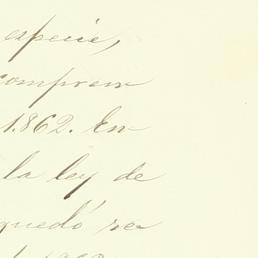 especie,
compren
1862. En
la ley de
quedó re